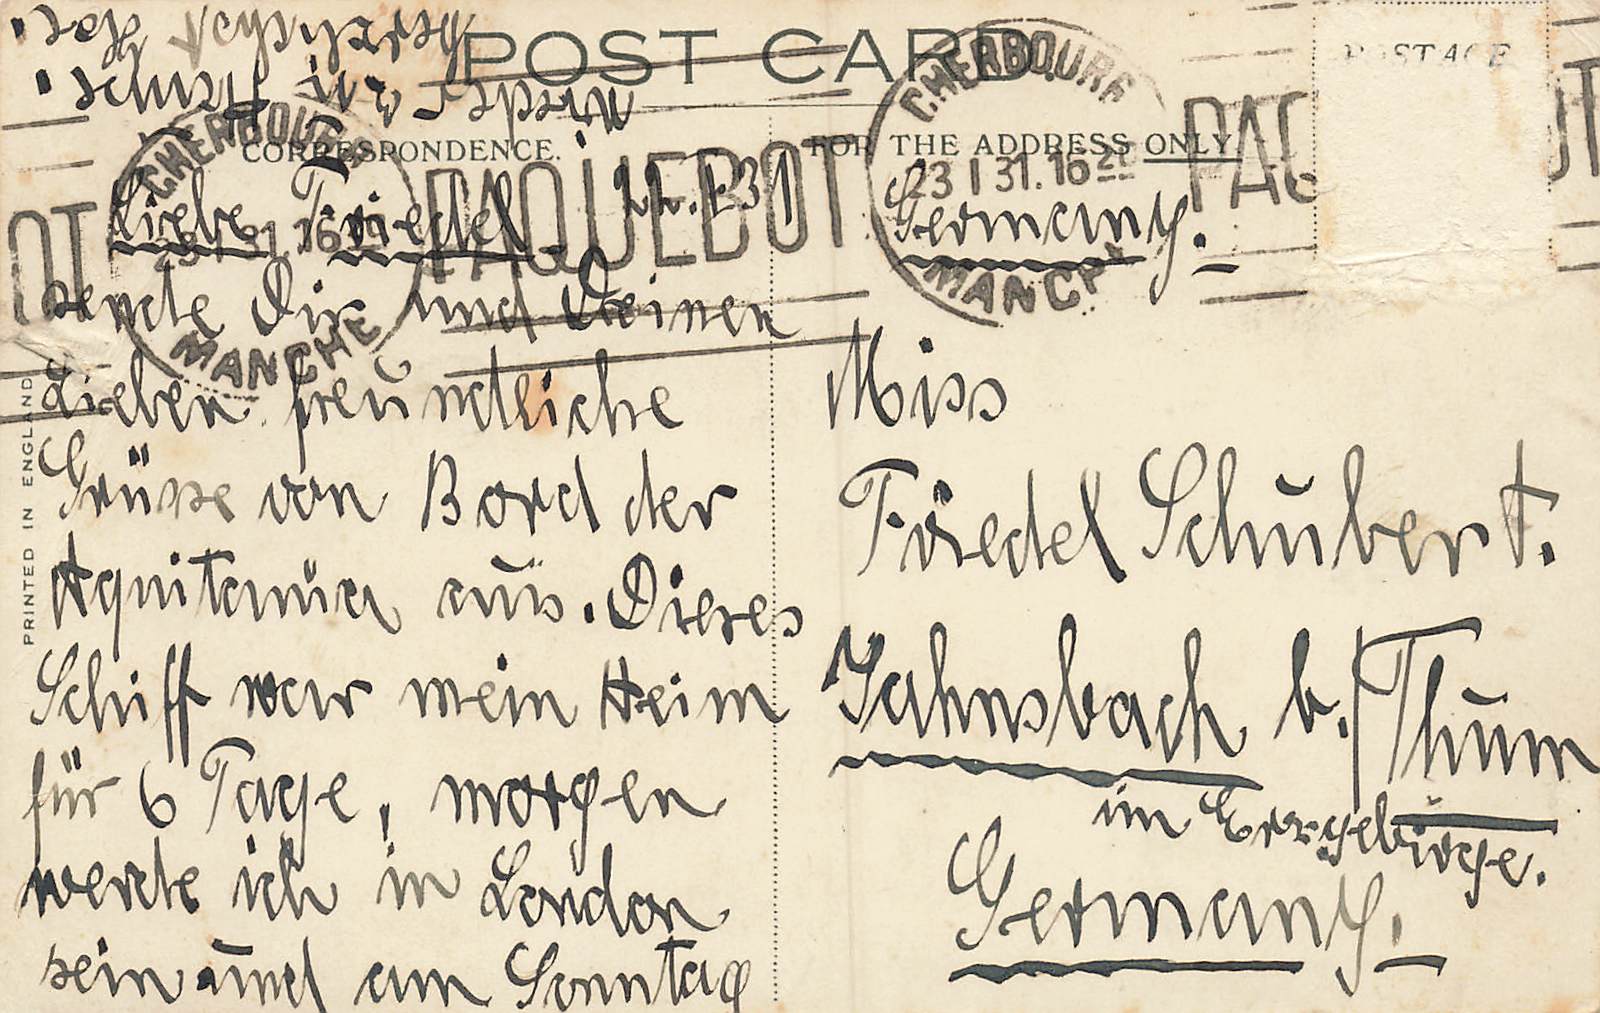 POST CARD
CORRESPONDENCE.
FOR THE ADDRESS ONLY
POSTAGE
PRINTED IN ENGLAND
CHERBOURG
MANCHE
PAQUEBOT
CHERBOURG
23 I 31. 16
MANCHE
PAQUEBOT
22.1.31
Liebe Friedel
sende Dir und Deinen
Lieben freundliche
Grüsse von Bord der
Aquitania aus. Dieses
Schiff war mein Heim
für 6 Tage, morgen
werde ich in London
sein und am Sonntag
wieder in
Germany.
Miss
Friedel Schubert.
Jahnsbach b./Thum
im Erzgebirge.
Germany.